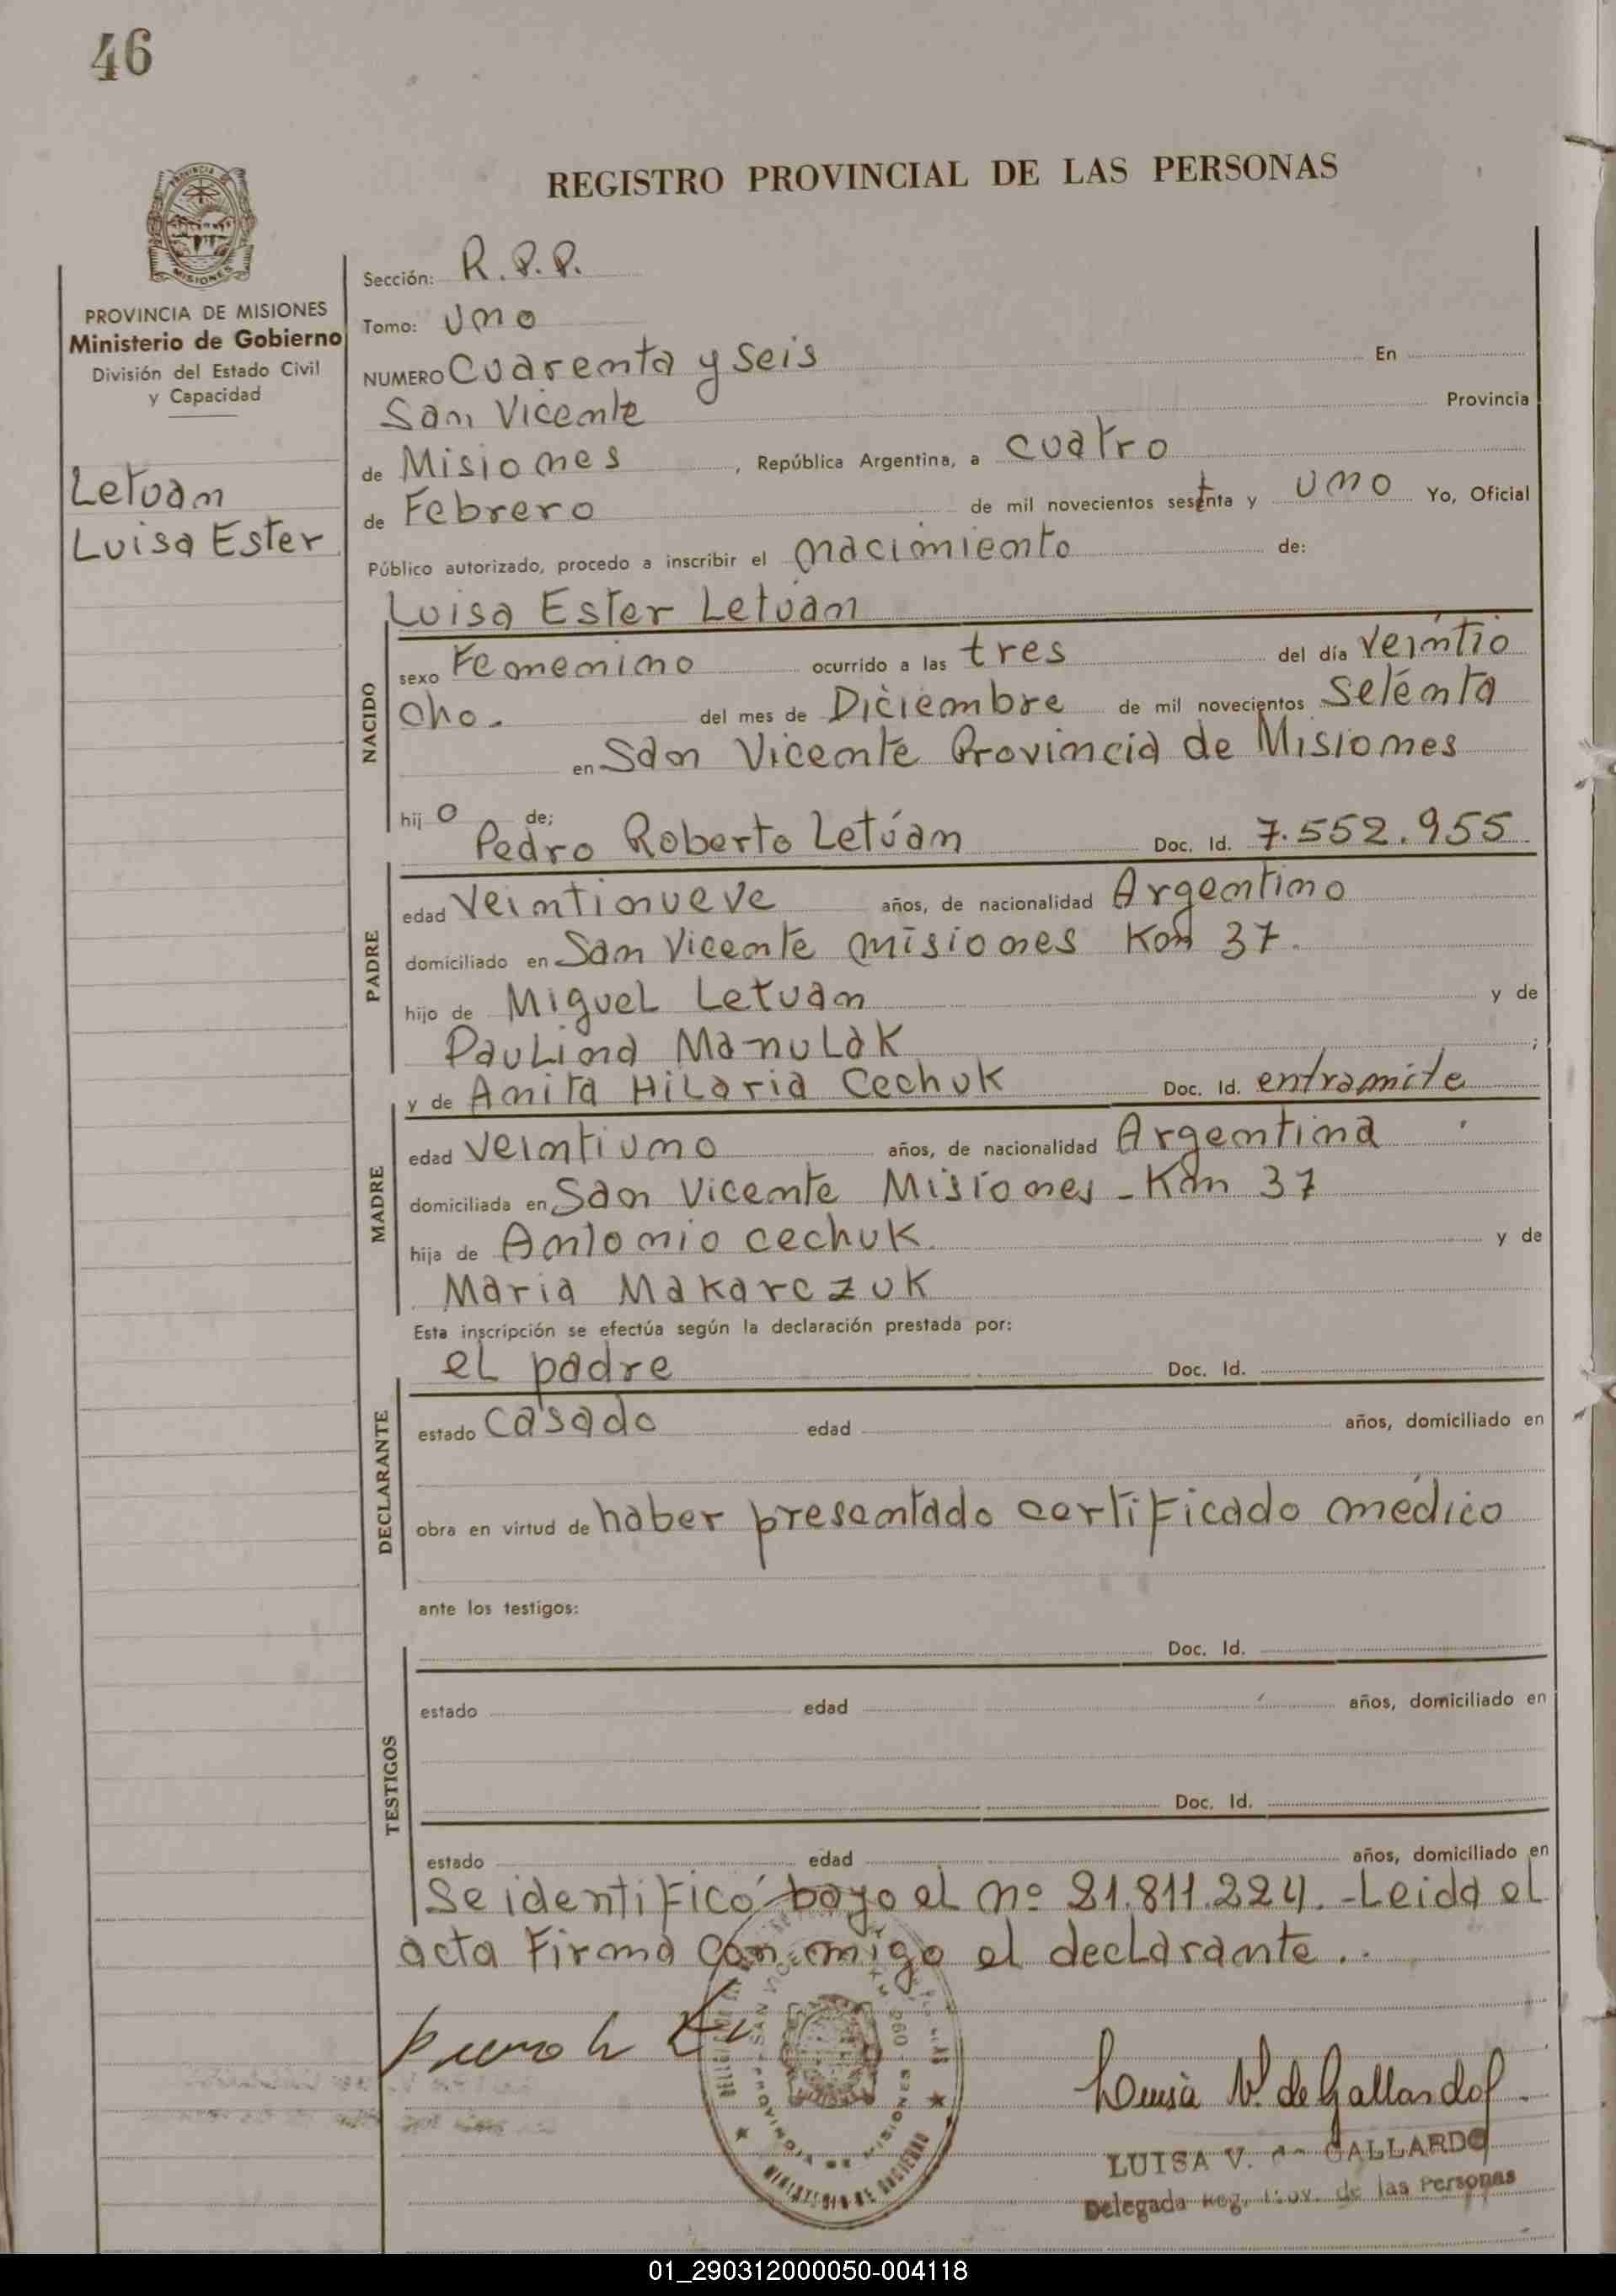 46
REGISTRO PROVINCIAL DE LAS PERSONAS
PROVINCIA DE MISIONES
Ministerio de Gobierno
División del Estado Civil
y Capacidad
Letuan
Luisa Ester
Sección: R.P.P.
Tomo: Uno
NUMERO Cuarenta y seis En
San Vicente Provincia
de Misiones, República Argentina, a cuatro
de Febrero de mil novecientos setenta y uno Yo, Oficial
Público autorizado, procedo a inscribir el nacimiento de:
Luisa Ester Letuan
NACIDO
sexo Femenino ocurrido a las tres del día veintio
cho. del mes de Diciembre de mil novecientos setenta
en San Vicente Provincia de Misiones
hijo de;
Pedro Roberto Letuan Doc. Id. 7.552.955
PADRE
edad veintinueve años, de nacionalidad Argentino
domiciliado en San Vicente misiones Km 37.
hijo de Miguel Letuan y de
Paulina Manulak ;
y de Anita Hilaria Cechuk Doc. Id. entramite
MADRE
edad veintiuno años, de nacionalidad Argentina
domiciliada en San Vicente Misiones - Km 37
hija de Antonio cechuk y de
Maria Makarczuk
Esta inscripción se efectúa según la declaración prestada por:
el padre Doc. Id.
DECLARANTE
estado casado edad años, domiciliado en
obra en virtud de haber presentado certificado médico
ante los testigos:
Doc. Id.
TESTIGOS
estado edad años, domiciliado en
Doc. Id.
estado edad años, domiciliado en
Se identificó bajo el nº 21.811.224. - Leida el
acta Firma conmigo el declarante..
Luisa V. de Gallardo
LUISA V. de GALLARDO
Delegada Reg. Prov. de las Personas
01_290312000050-004118